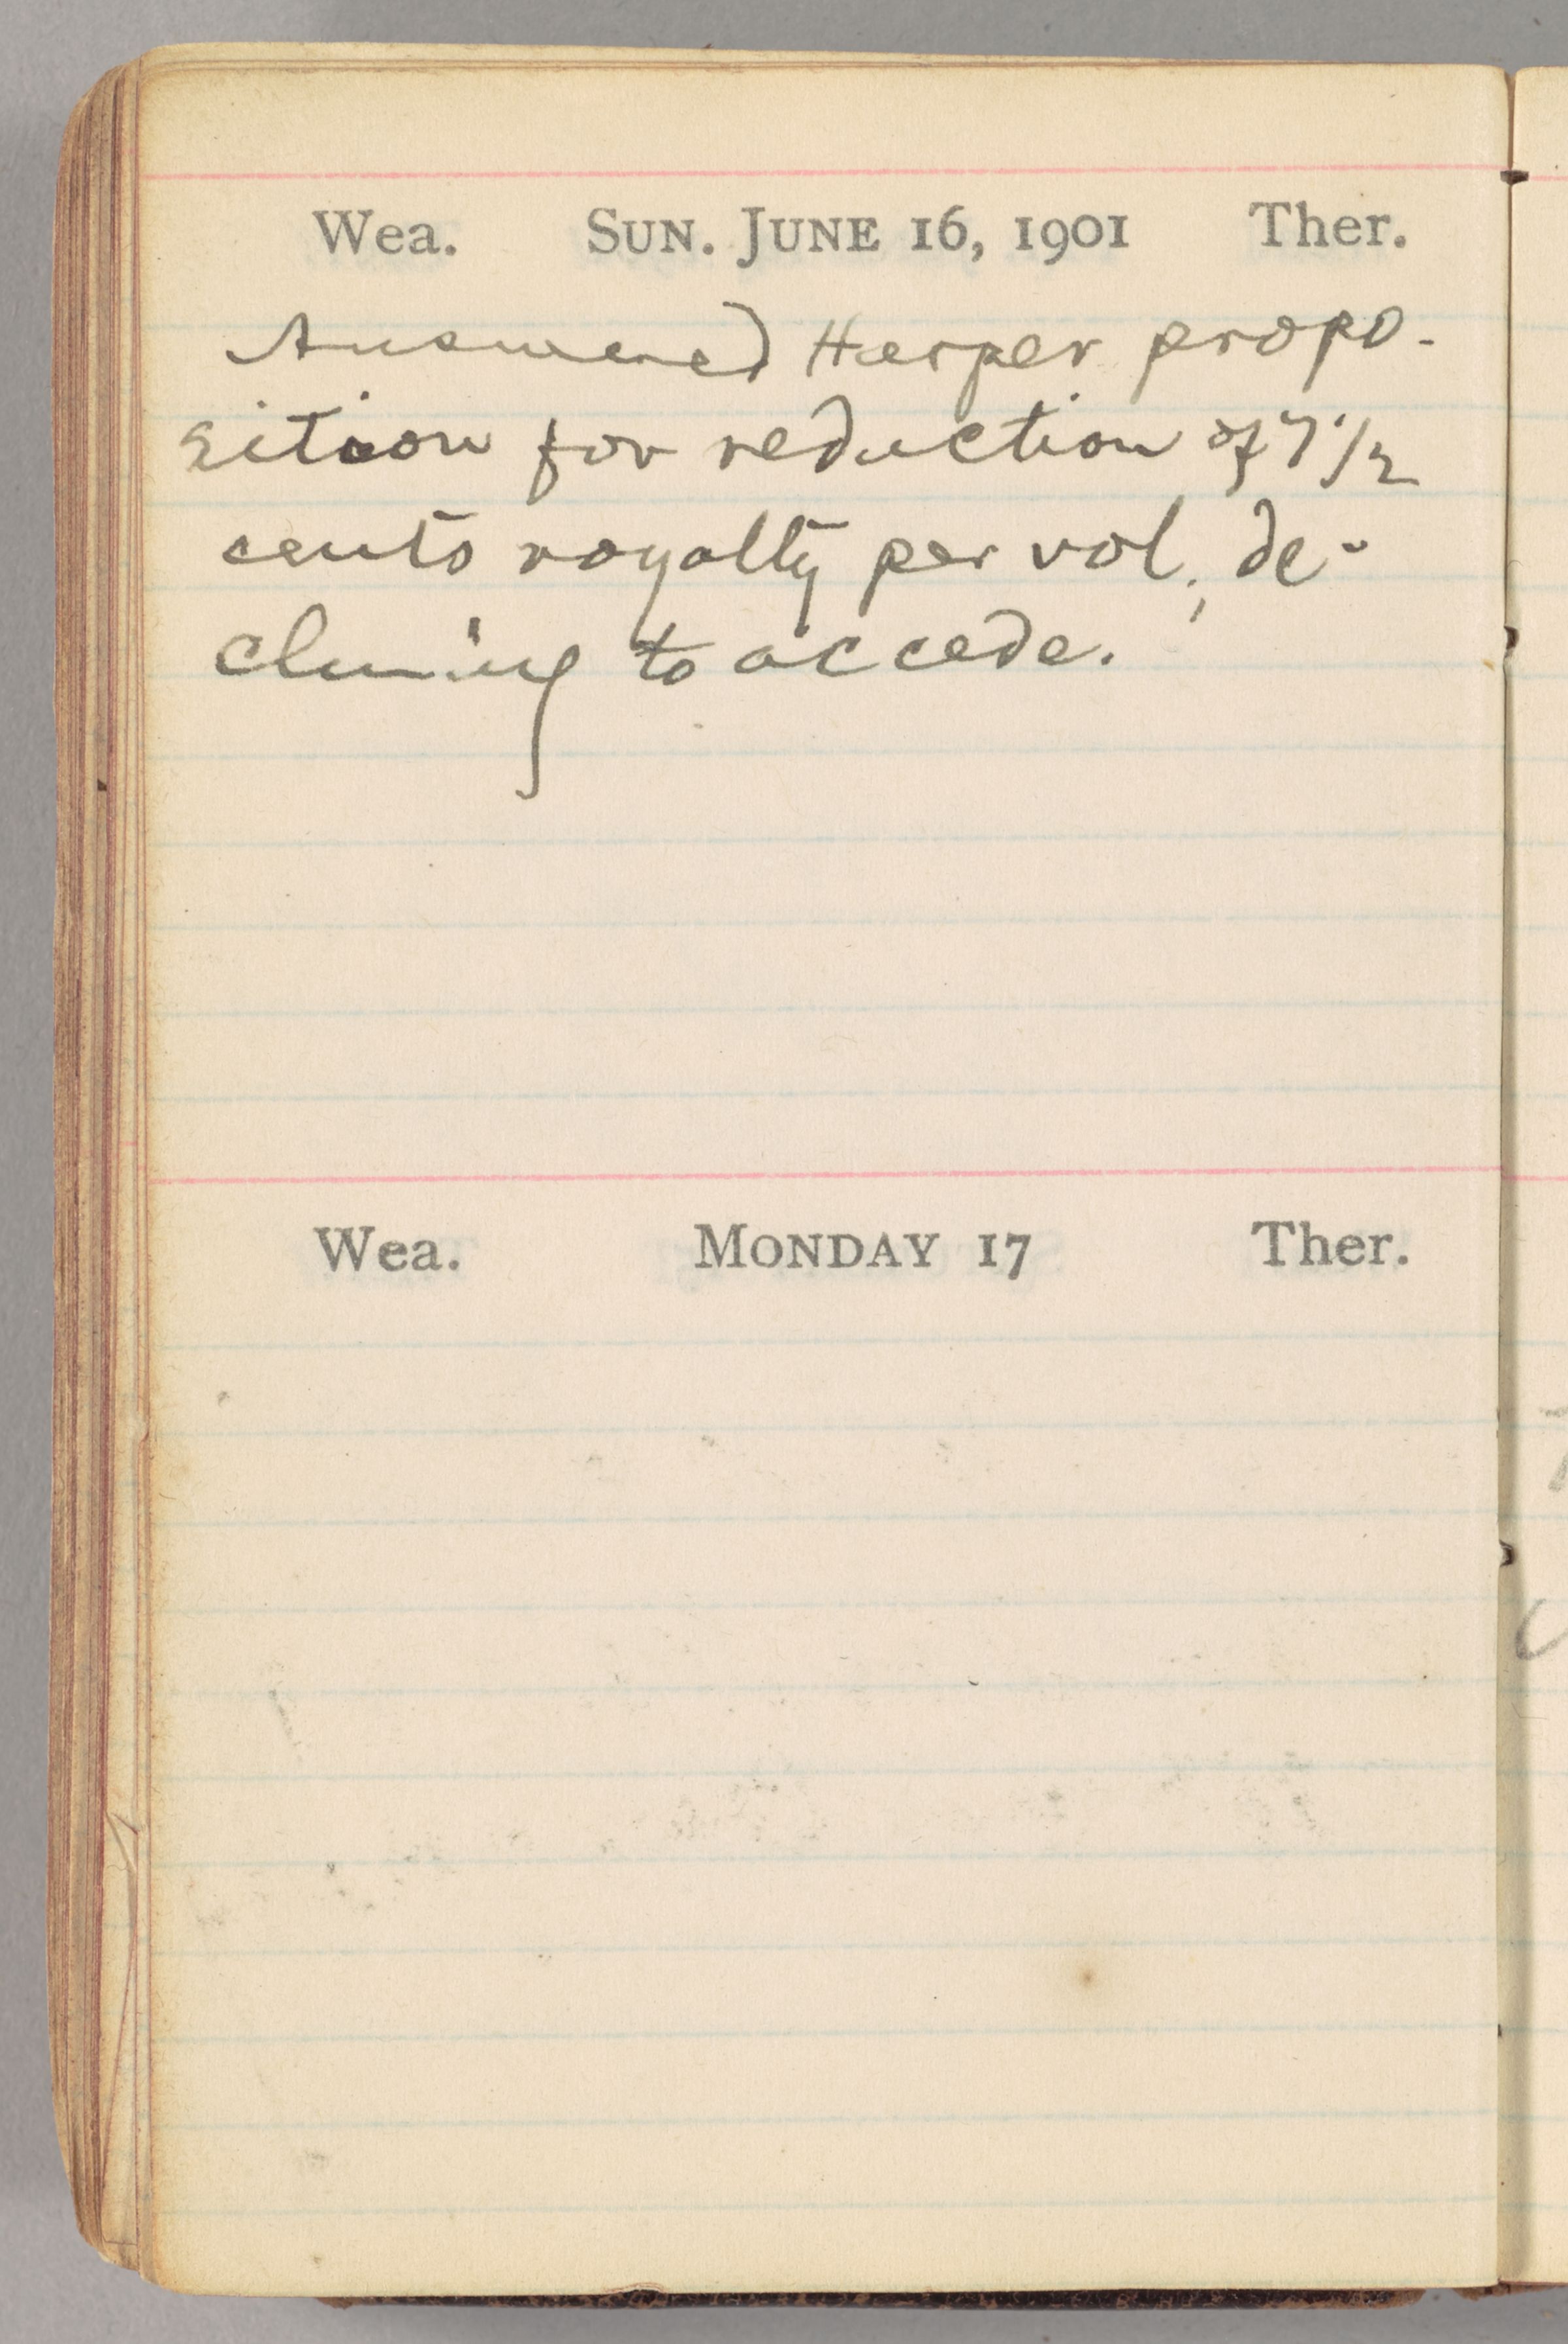 Wea. SUN. JUNE 16, 1901 Ther.
Answered Harper propo-
sition for reduction of 7 1/2
cents royalty per vol., de-
clining to accede.
Wea. MONDAY 17 Ther.